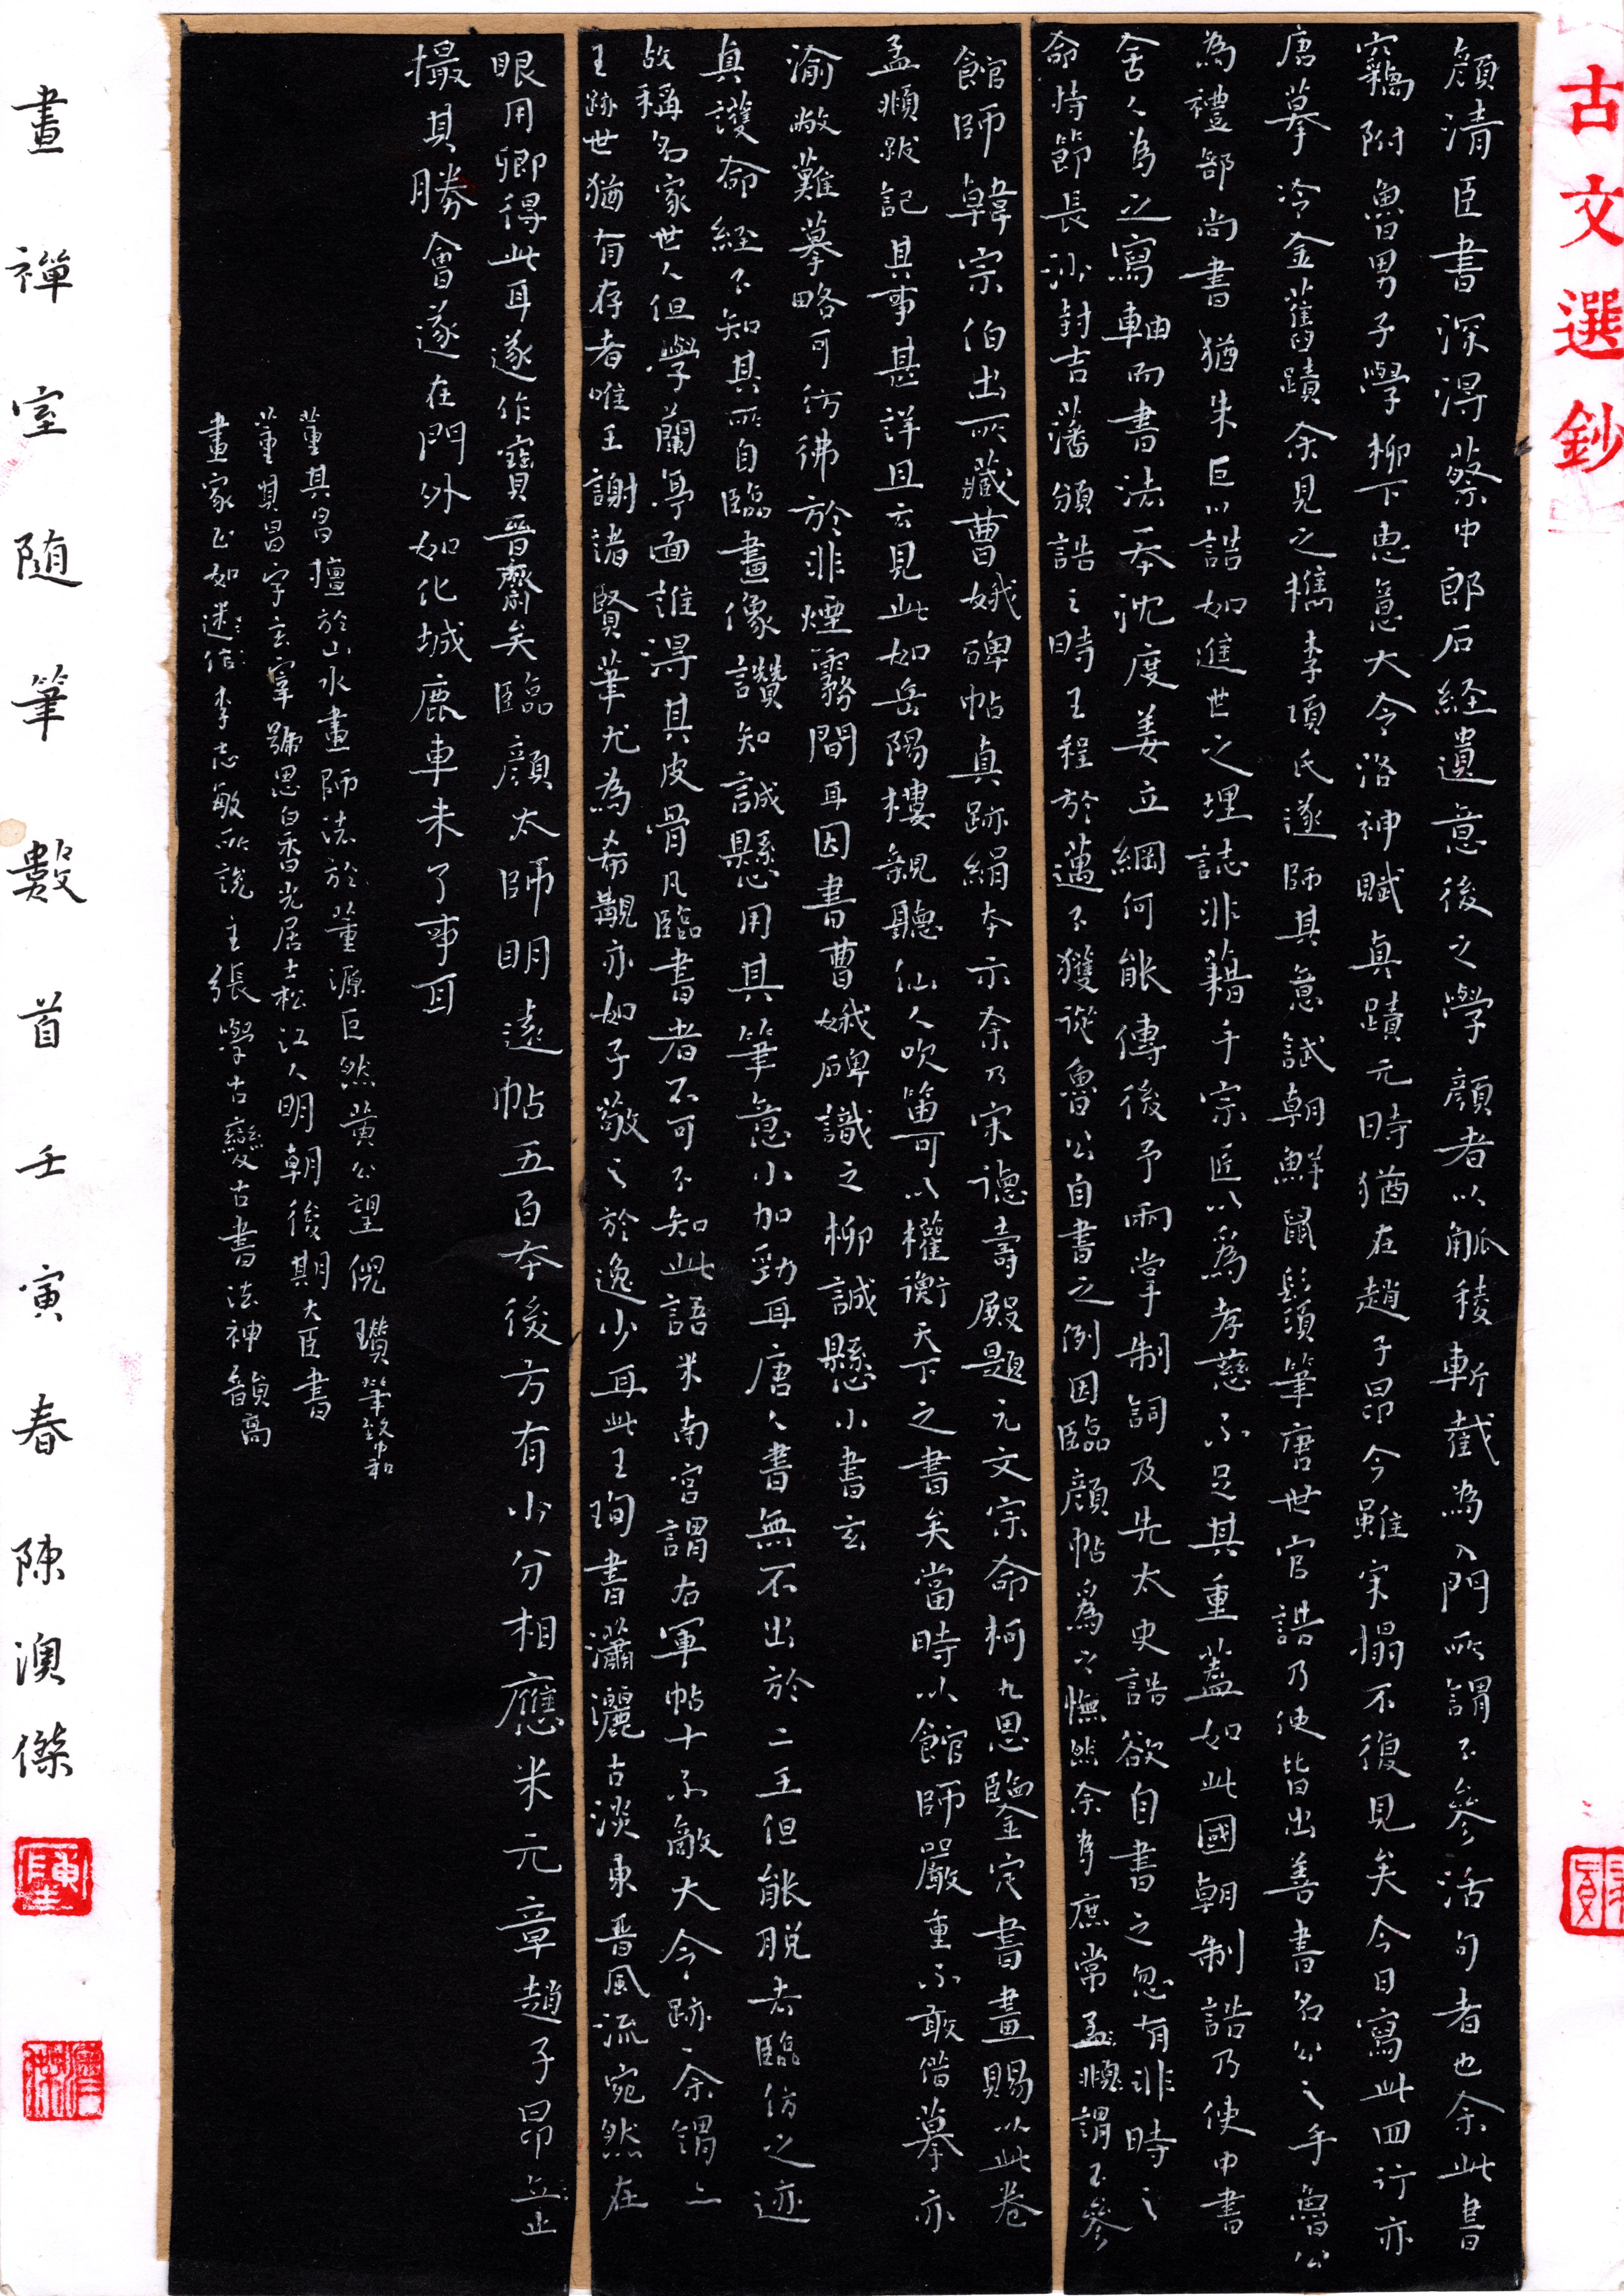 古文選鈔
顏清臣書深得蔡中郎石經遺意後之學顏者以觚稜斬截為入門所謂不參活句者也余此書
竊附魯男子學柳下惠意大令洛神賦真蹟元時猶在趙子昂今雖宋榻不復見矣今日寫此四行亦
唐摹冷金舊蹟余見之檇李項氏遂師其意試朝鮮鼠鬚筆唐世官誥乃使皆出善書名公之手魯公
為禮部尚書猶朱巨川誥如進世之埋誌非籍手宗匠以為孝慈不足其重蓋如此國朝制誥乃使中書
舍人為之寫軸而書法一本沈度姜立綱何能傳後予兩掌制詞及先太史誥欲自書之忽有非時之
命持節長沙封吉藩頒誥之時王程於邁不獲從魯公自書之例因臨顏帖為之憮然余為庶常孟頫謂不參
館師韓宗伯出所藏曹娥碑帖真跡絹本示余乃宋德壽殿題元文宗命柯九思鑒定書畫賜以此卷
孟頫跋記其事甚詳且云見此如岳陽樓親聽仙人吹笛可以權衡天下之書矣當時以館師嚴重不敢借摹亦
渝敝難摹略可彷彿於非煙霧間耳因書曹娥碑識之柳誠懸小書玄
真護命經不知其所自臨畫像讚知誠懸用其筆意小加勁耳唐人書無不出於二王但能脫去臨仿之迹
故稱名家世人但學蘭亭面誰得其皮骨凡臨書者不可不知此語米南宮謂右軍帖十不敵大令跡一余謂二
王跡世猶有存者唯王謝諸賢筆尤為希覯亦如子敬之於逸少耳此王珣書瀟灑古淡東晉風流宛然在
眼用卿得此耳遂作寶晉齋矣臨顏太師明遠帖五百本後方有少分相應米元章趙子昂止
撮其勝會遂在門外如化城鹿車未了事耳
董其昌擅於山水畫師法於董源巨然黃公望倪瓚筆致中和
董其昌字玄宰號思白香光居士松江人明朝後期大臣書
畫家正如李志敏所說主張學古變古書法神韻高
畫禪室随筆數首壬寅春陳澳傑